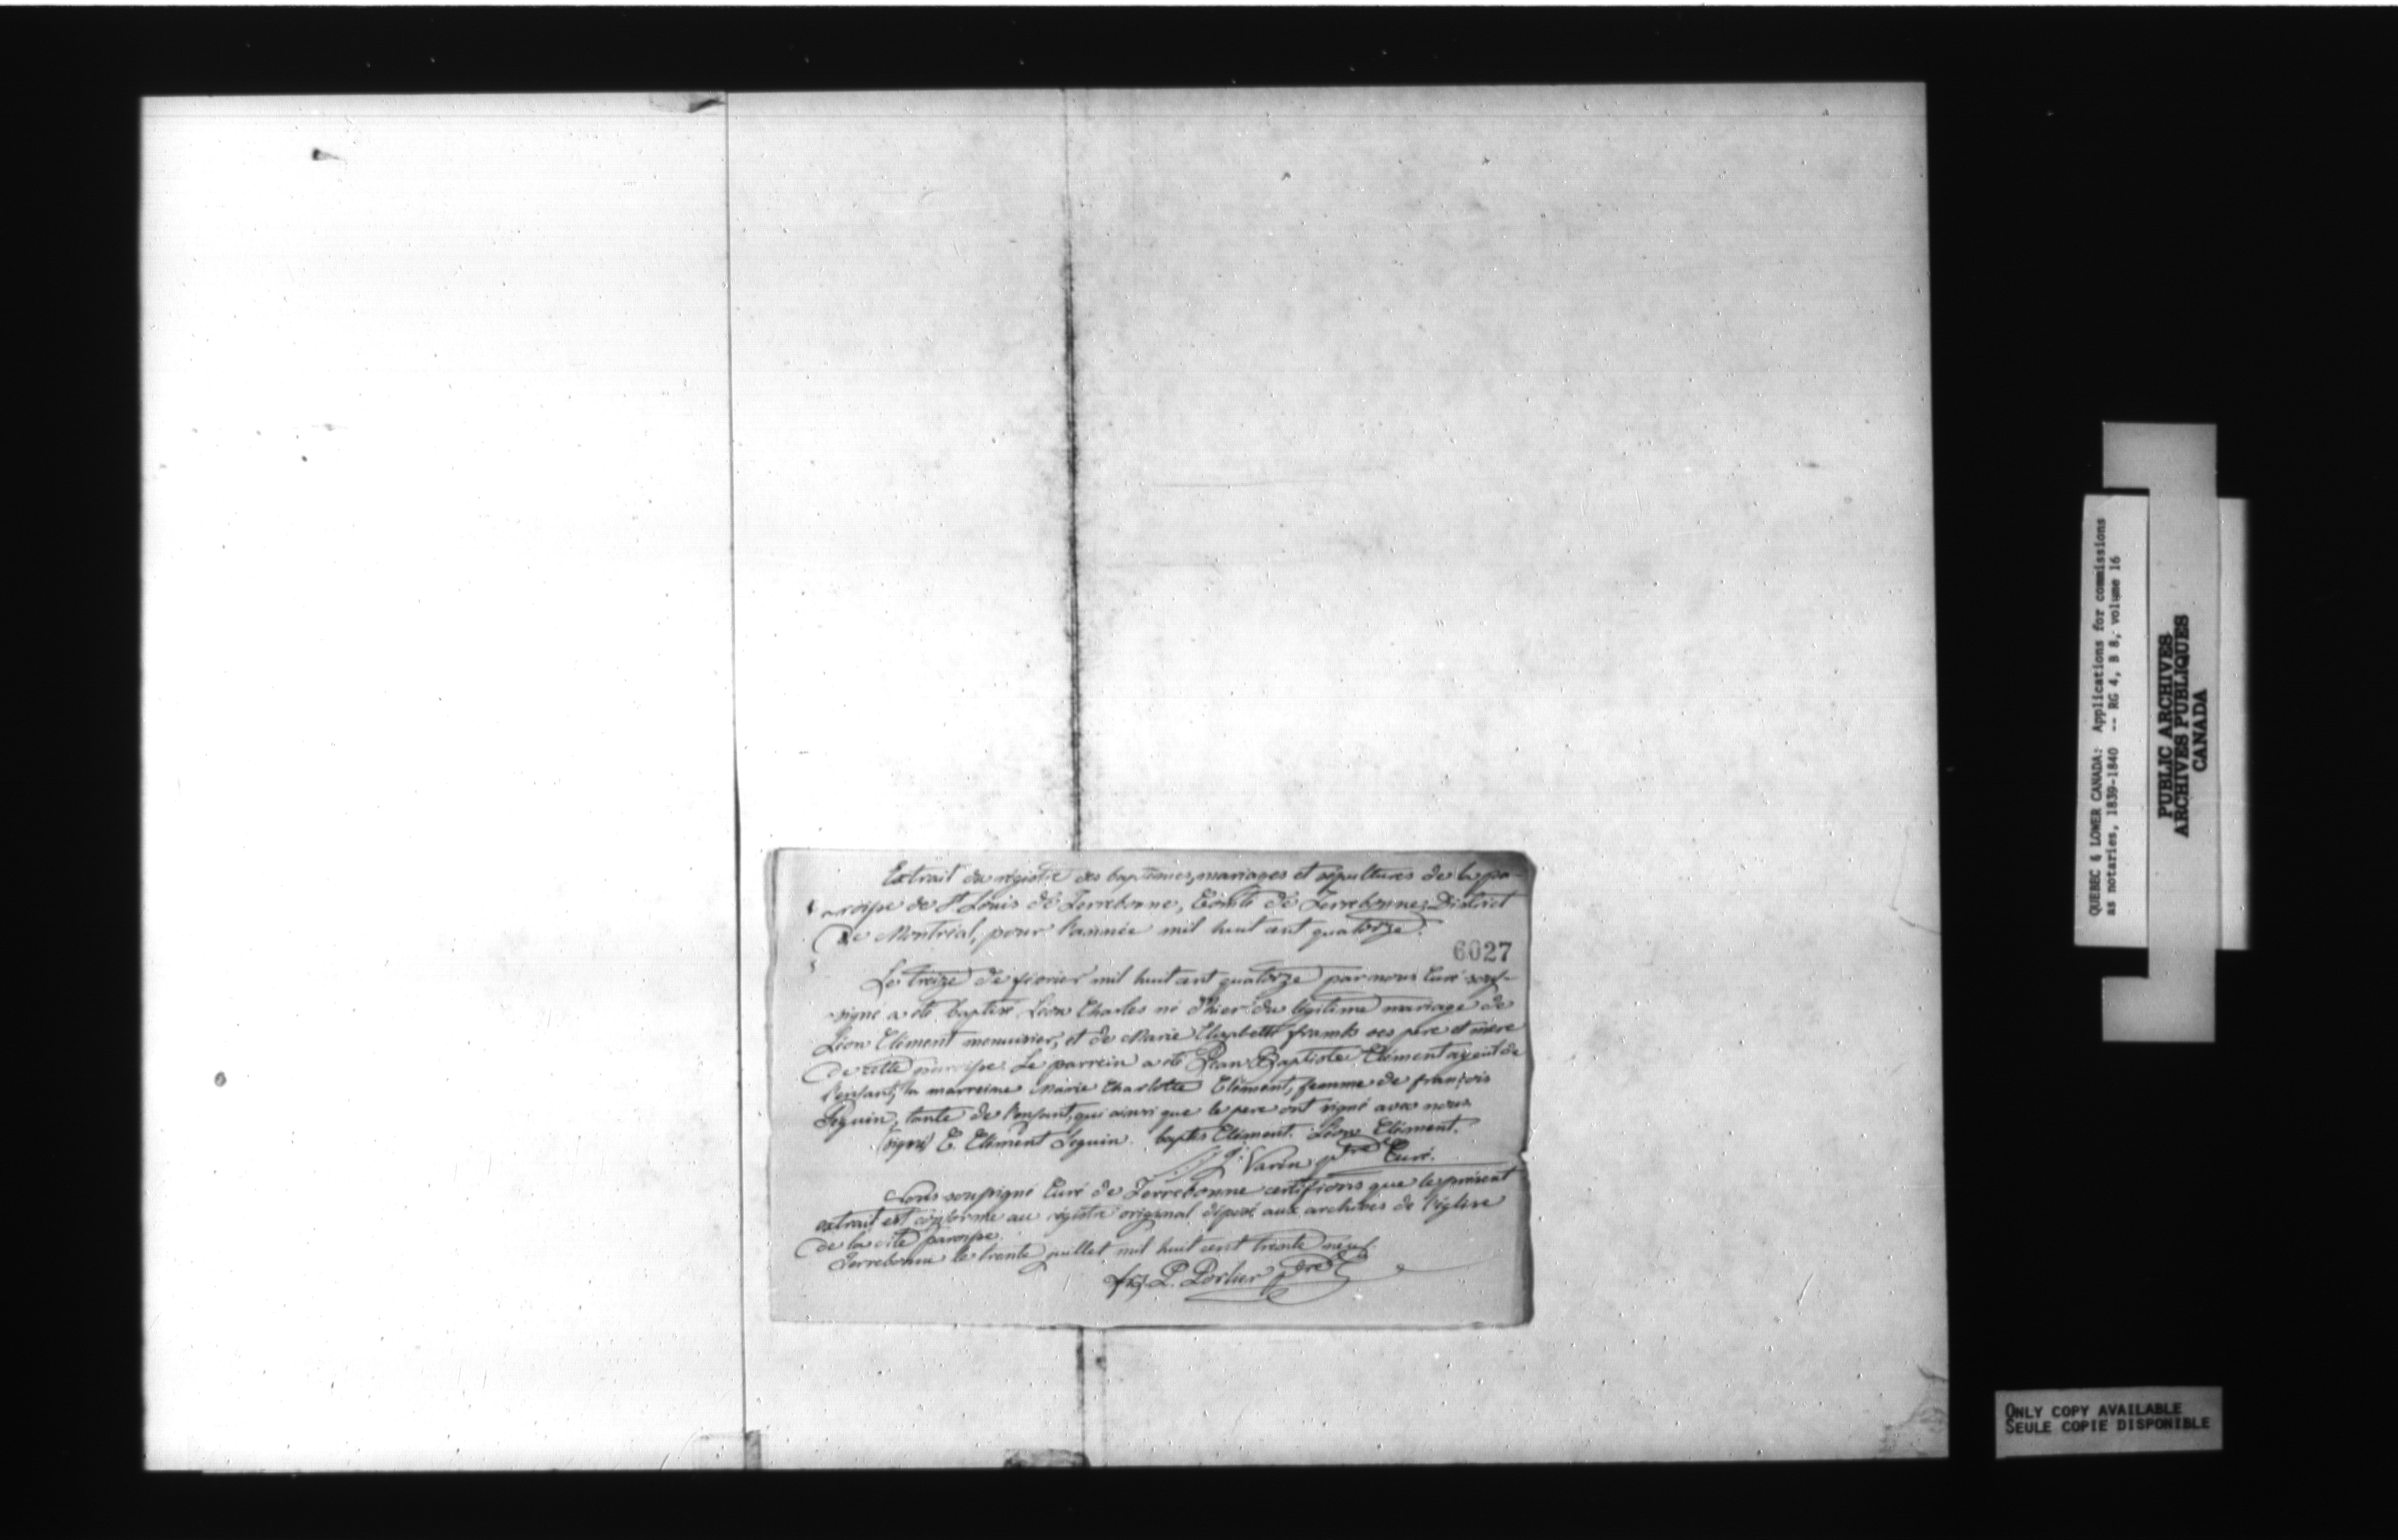 Extrait du régistre des baptêmes, mariages et sépultures de la pa-
-roisse de St Louis de Terrebonne, Comté de Terrebonne, District
de Montréal, pour l'année mil huit cent quatorze.
6027
Le treize de février mil huit cent quatorze par nous Curé sous-
-signé a été baptisé Léon Charles né d'hier du légitime mariage de
Léon Clément menuisier, et de Marie Elizabeth franks ses père et mère
de cette paroisse. Le parrein a été Jean Baptiste Clément ayeul de
l'enfant, la marreine Marie Charlotte Clément, femme de françois
Seguin, tante de l'enfant, qui ainsi que le pere ont signé avec nous
(signé) C. Clément Seguin. baptis Clément. Léon Clément.
Varin ptre Curé.
Nous soussigné Curé de Terrebonne certifions que le présent
extrait est conforme au régistre original déposé aux archives de l'église
de la dite paroisse.
Terrebonne le trente juillet mil huit cent trente neuf.
frs P. Porlier ptre
QUEBEC & LOWER CANADA: Applications for commissions
as notaries, 1839-1840 -- RG 4, B 8, volume 16
PUBLIC ARCHIVES
ARCHIVES PUBLIQUES
CANADA
ONLY COPY AVAILABLE
SEULE COPIE DISPONIBLE